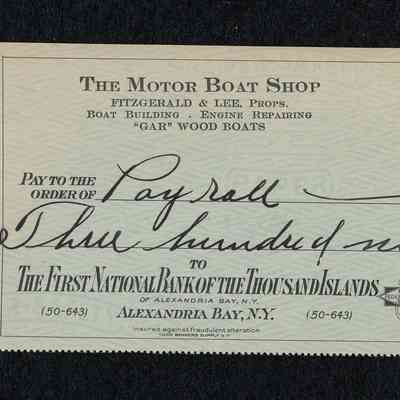 THE MOTOR BOAT SHOP
FITZGERALD & LEE, PROPS.
BOAT BUILDING - ENGINE REPAIRING
"GAR" WOOD BOATS
PAY TO THE
ORDER OF Payroll
Three hundred
TO
THE FIRST NATIONAL BANK OF THE THOUSAND ISLANDS
OF ALEXANDRIA BAY, N.Y.
(50-643) ALEXANDRIA BAY, N.Y. (50-643)
insured against fraudulent alteration